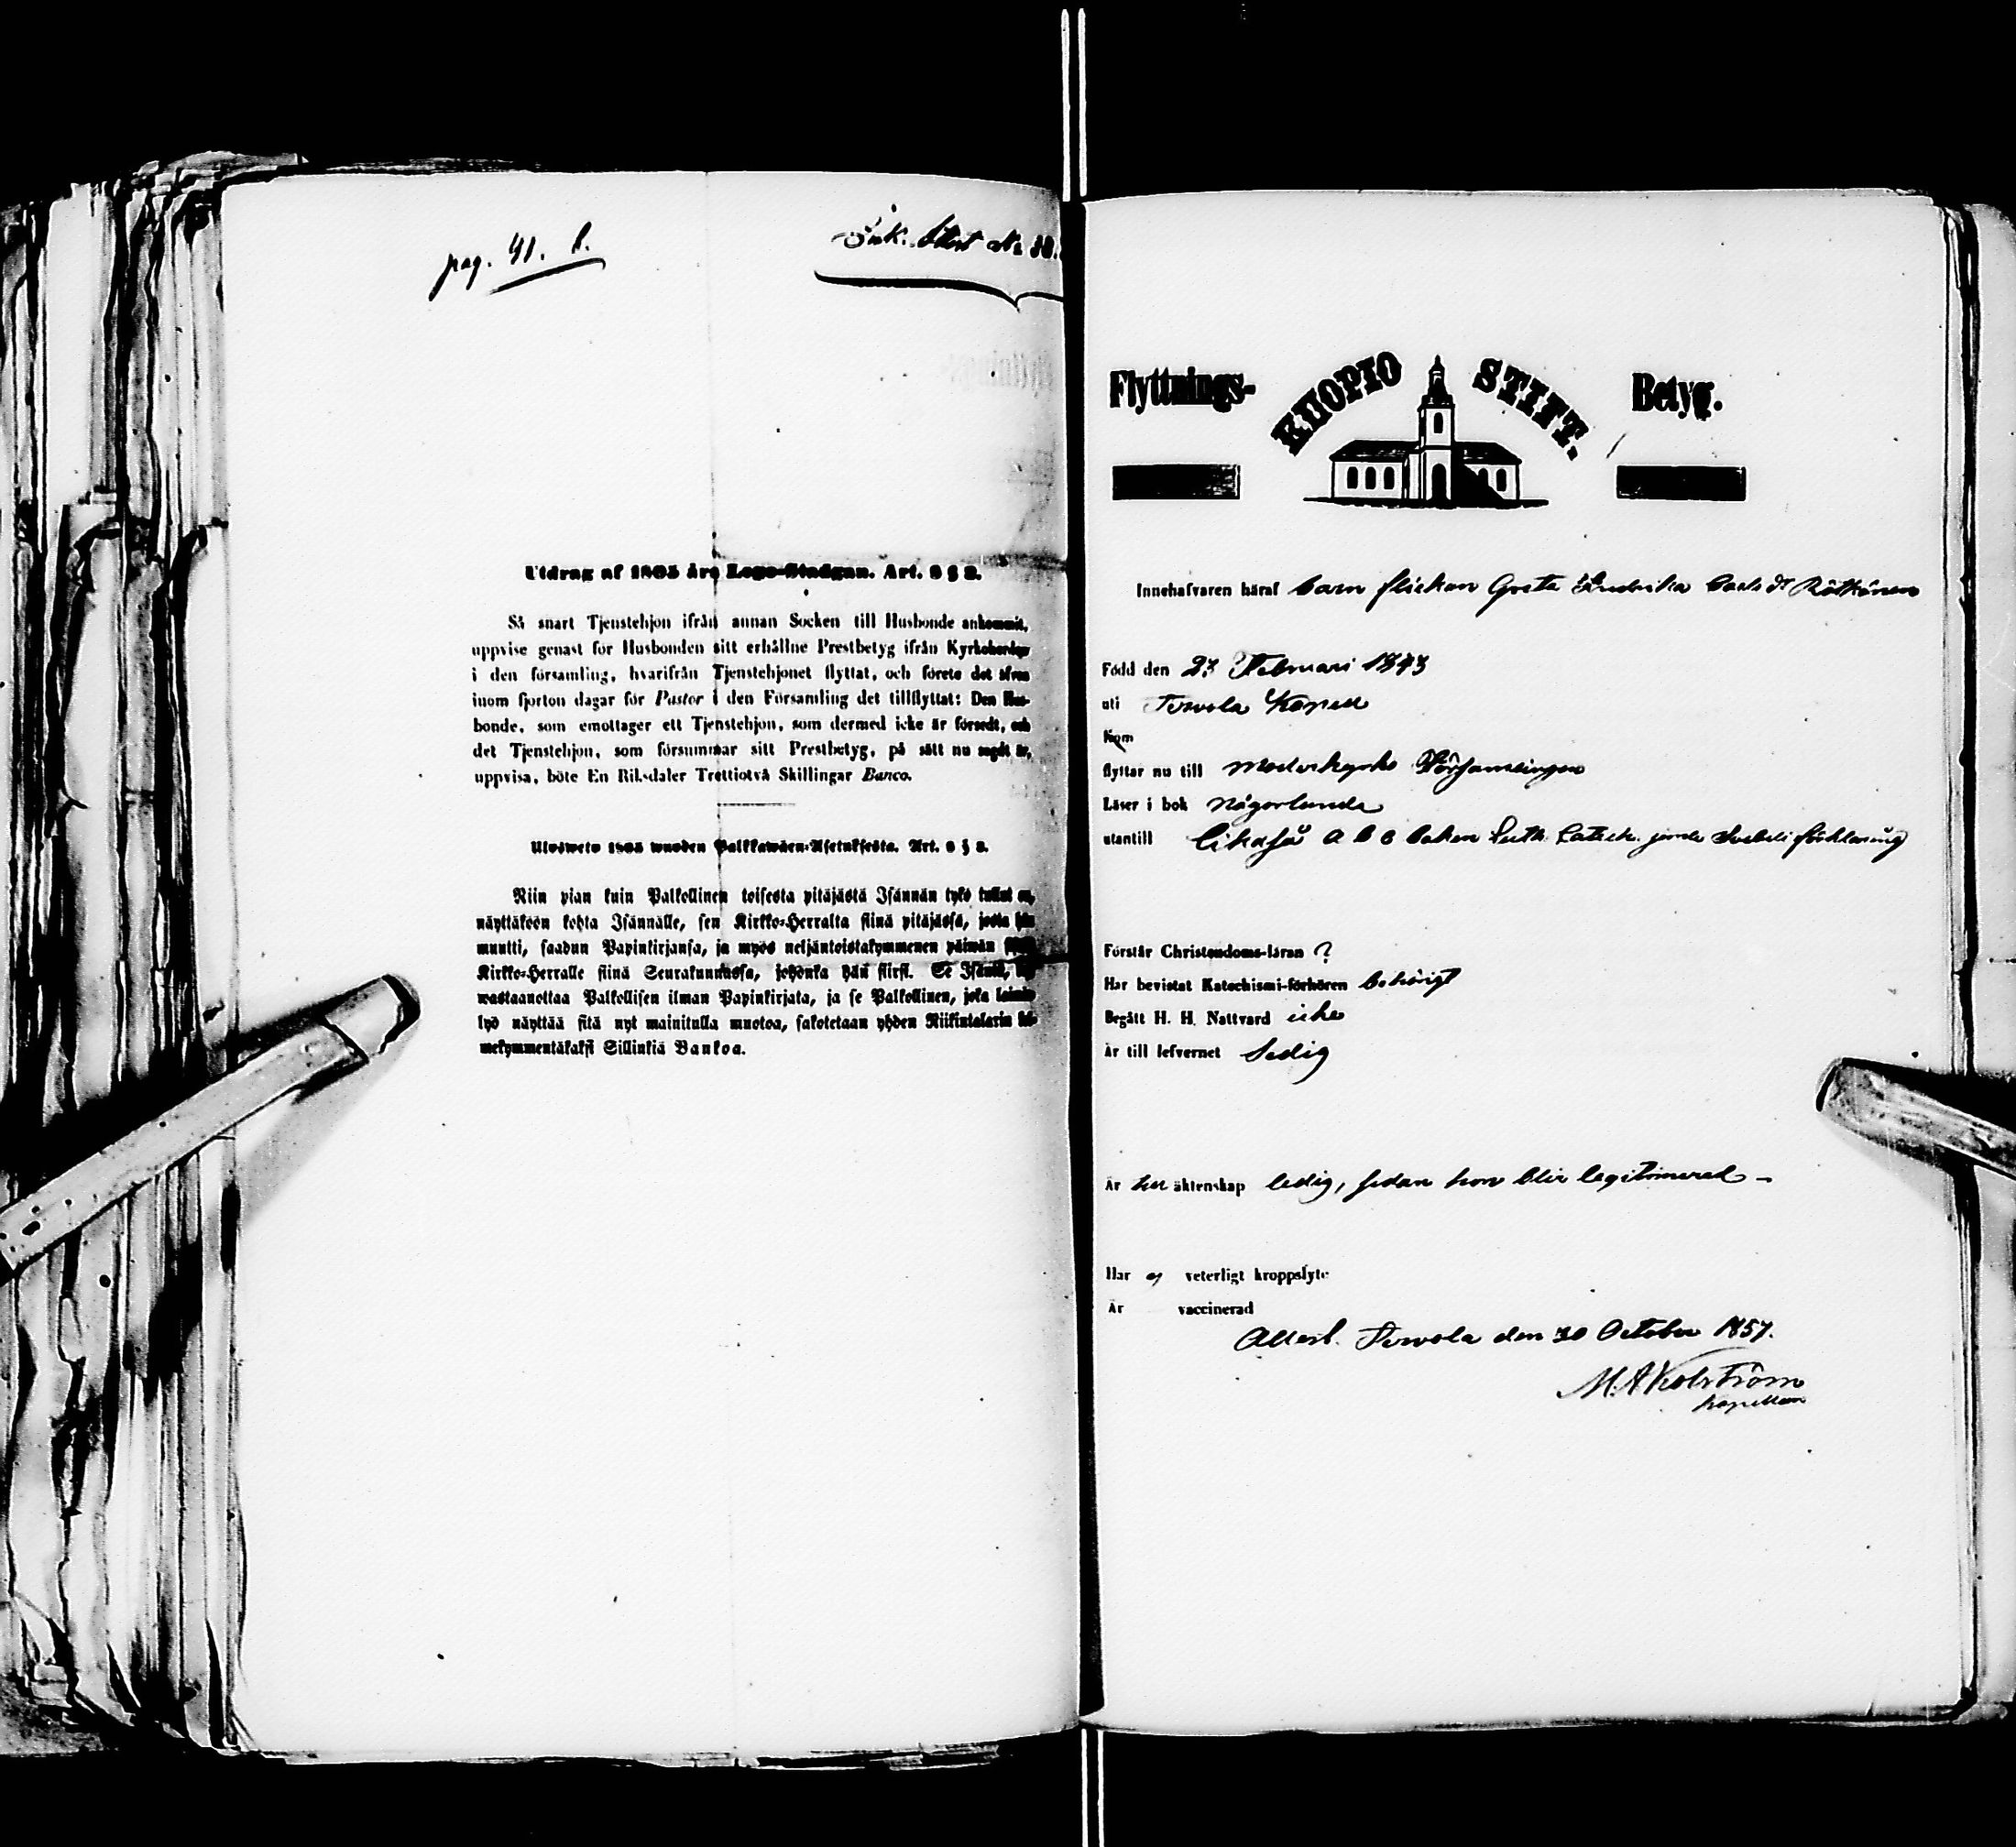 pag. 41. b.
Ink. Attest No 38.
Utdrag af 1805 års Lego-Stadgan. Art. 8 § 2.
Så snart Tjenstehjon ifrån annan Socken till Husbonde ankommit,
uppvise genast för Husbonden sitt erhållne Prestbetyg ifrån Kyrkoherden
i den församling, hvarifrån Tjenstehjonet flyttat, och förete det äfven
inom fjorton dagar för Pastor i den Församling det tillflyttat: Den Hus-
bonde, som emottager ett Tjenstehjon, som dermed icke är försedt, och
det Tjenstehjon, som försummar sitt Prestbetyg, på sätt nu sagdt är,
uppvisa, böte En Riksdaler Trettiotvå Skillingar Banco.
Ulosweto 1805 wuoden Palkkawäen-Asetuksesta. Art. 8 § 2.
Niin pian kuin Palkollinen toisesta pitäjästä Isännän tykö tullut on,
näyttäköön kohta Isännälle, sen Kirkko-Herralta siinä pitäjässä, josta hän
muutti, saadun Papinkirjansa, ja myös neljäntoistakymmenen päiwän
Kirkko-Herralle siinä Seurakunnassa, johonka hän siirsi. Se Isäntä,
wastaanottaa Palkollisen ilman Papinkirjata, ja se Palkollinen, joka laimin
lyö näyttää sitä nyt mainitulla muotoa, sakotetaan yhden Riikintalarin kol-
mekymmentäkaksi Sillinkiä Bankoa.
Flyttnings- KUOPIO STIFT. Betyg.
Innehafvaren häraf barn flickan Greta Fredrika Carls dr Rötkönen
Född den 27 Februari 1843
uti Tervola Kapell
Kom
flyttar nu till moderkyrko Församlingen
Läser i bok någorlunda
utantill likaså a b c boken Luth. Catech. jemte Svebeli förklaring
Förstår Christendoms-läran ?
Har bevistat Katechismi-förhören behörigt
Begått H. H. Nattvard icke
Är till lefvernet Sedig
Är till äktenskap ledig, sedan hon blir legitimerad -
Har ej veterligt kroppslyte
Är vaccinerad
Attest. Tervola den 30 October 1857.
kapellan